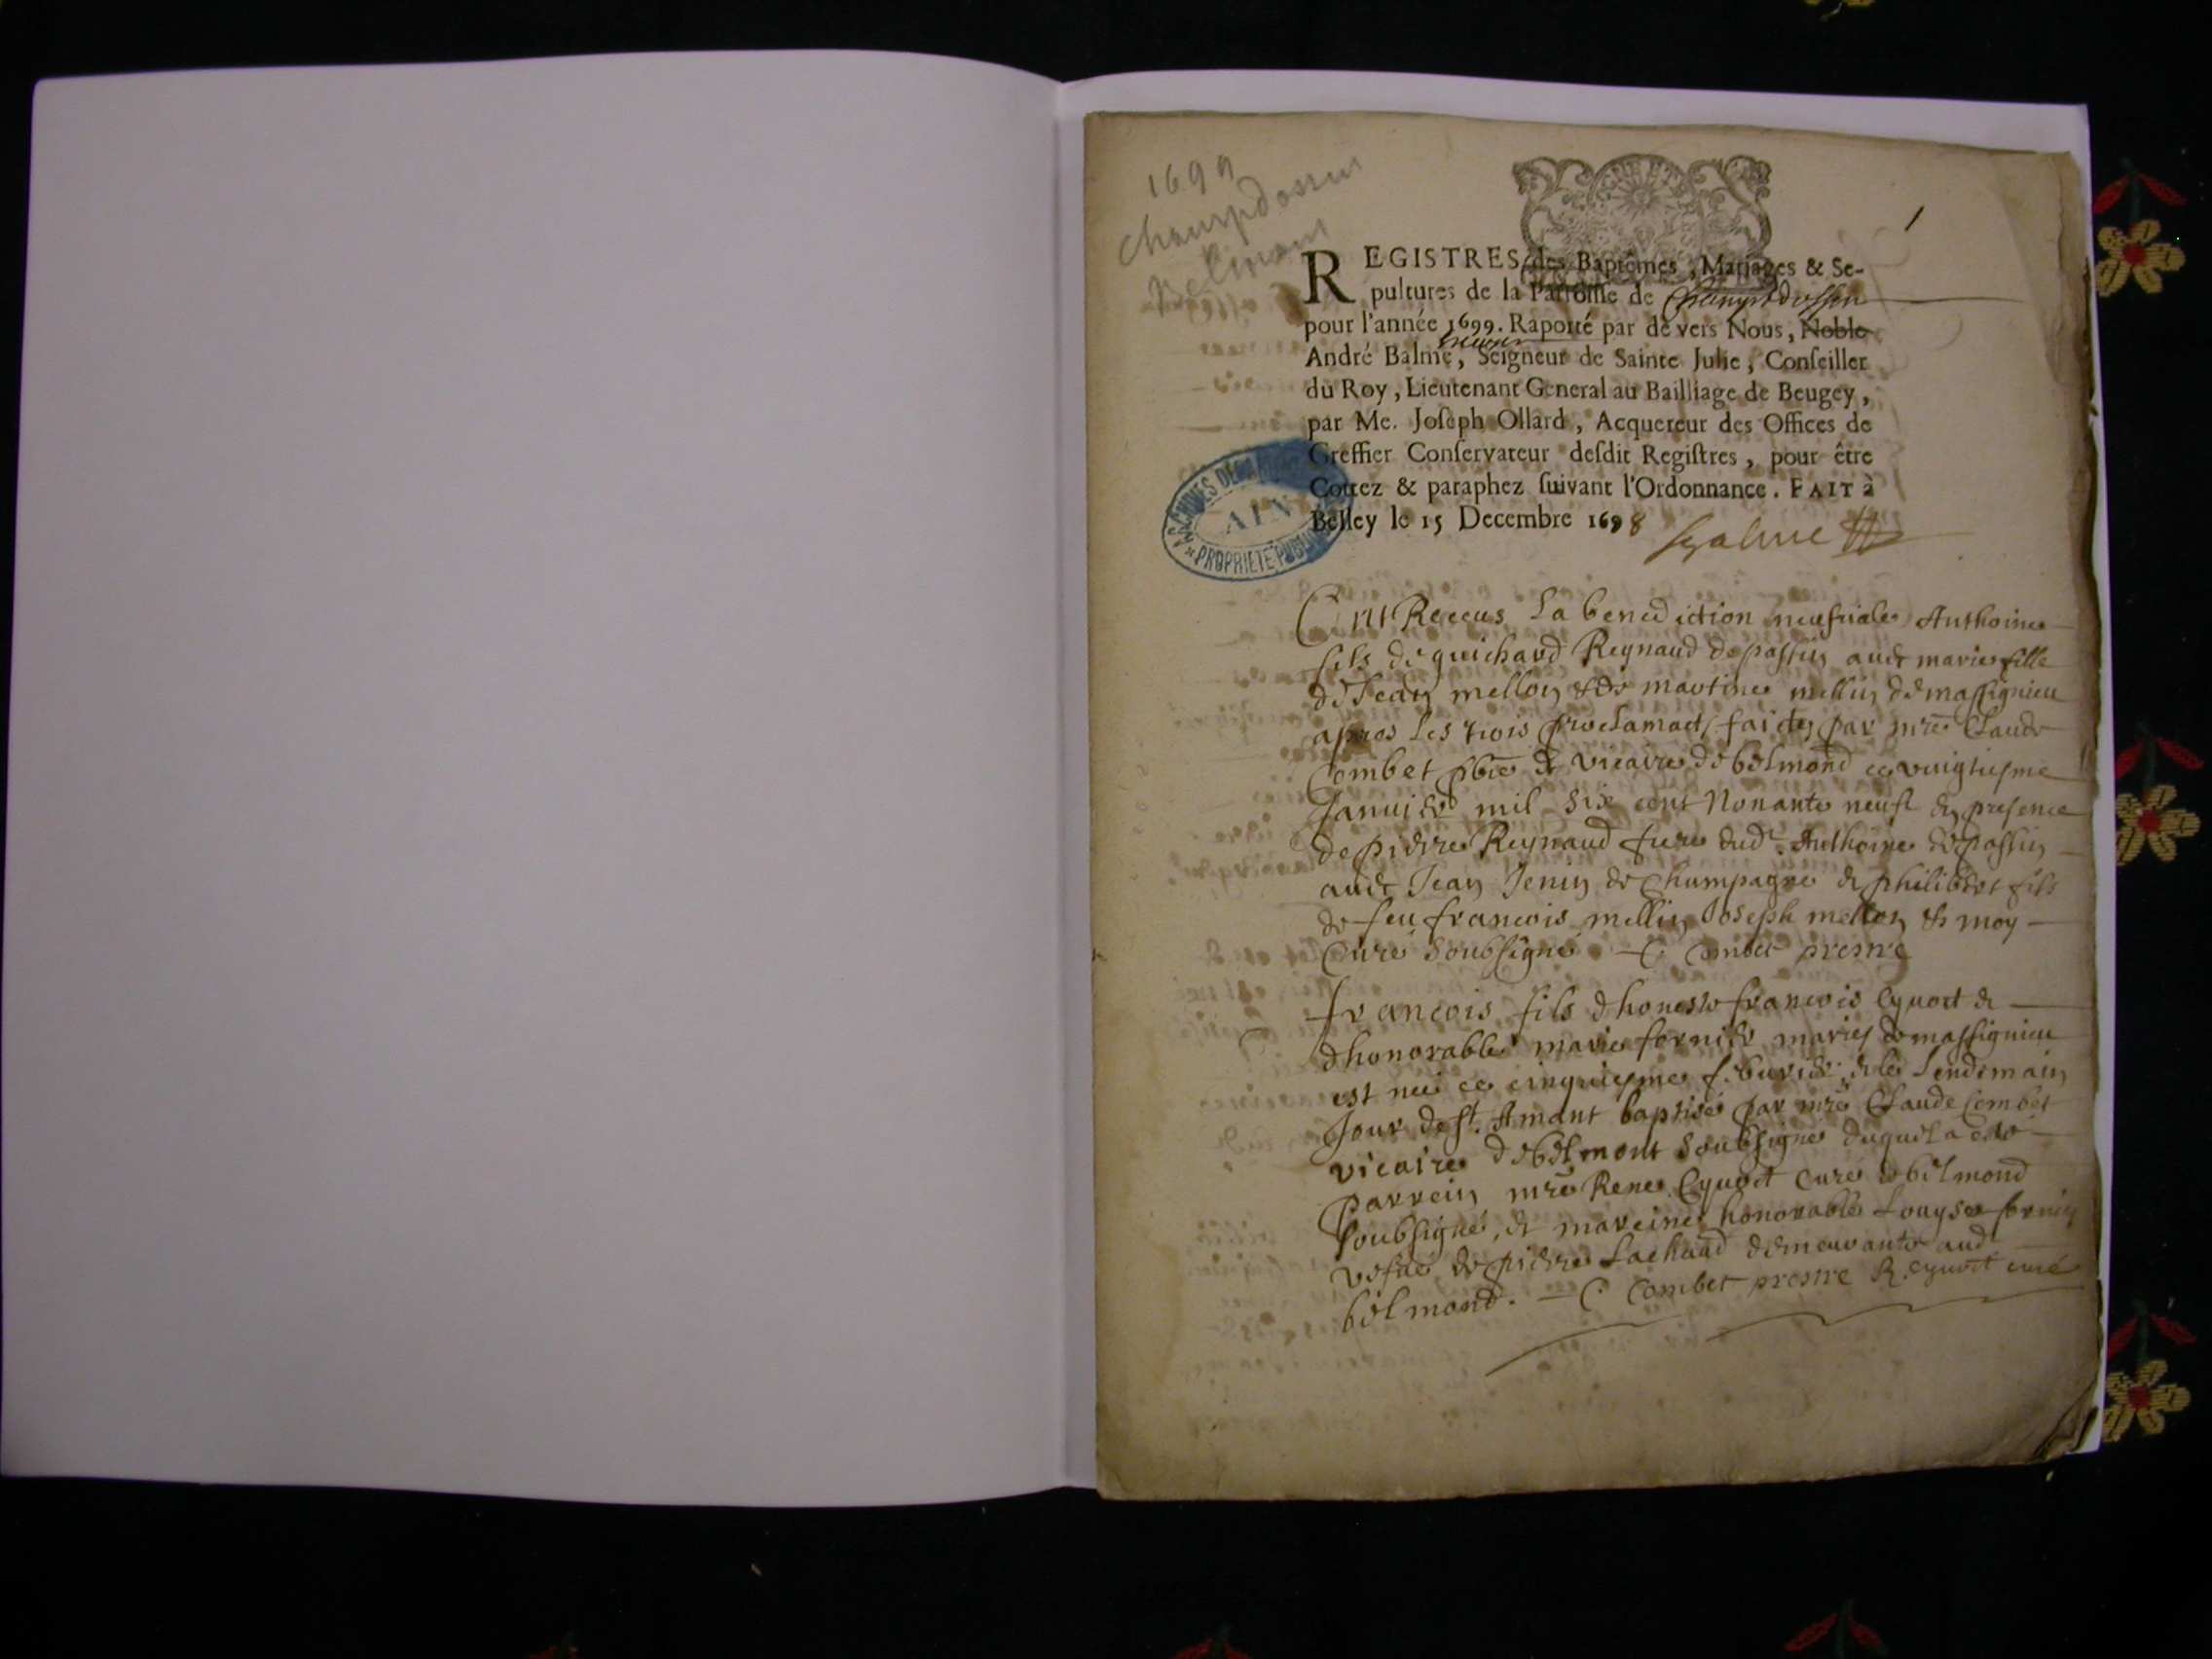 1699
Champdossin
Belmont
1
REGISTRES des Baptêmes, Mariages & Se-
pultures de la Parroisse de Champtdossin
pour l'année 1699. Raporté par de vers Nous, Noble
André Balme, Seigneur de Sainte Julie, Conseiller
du Roy, Lieutenant General au Bailliage de Beugey,
par Me. Joseph Ollard, Acquereur des Offices de
Greffier Conservateur desdit Registres, pour être
Cottez & paraphez suivant l'Ordonnance. FAIT à
Belley le 15 Decembre 1698
Balme
ARCHIVES DE
AIN
* PROPRIETE PUBLIQUE
Ont Receus la benediction Anthoine
fils de guichard Reynaud de passin avec marie fille
de Jean mellon & de martine mellin de massignieu
apres les trois proclamaõs faites par mre Claude
Combet pbre & vicaire de belmond ce vuigtiesme
Janvier mil six cent Nonante neuf en presence
de pierre Reynaud frere dudt. Anthoine de passin
avec Jean Jenin de Champagne & philibert fils
de feu francois mellin Joseph mellon & moy
Curé Soubsigné C Combet prestre
francois fils dhoneste francois Cyvoct &
dhonorable marie fornier mariés de massignieu
est né ce cinquiesme febvrier & le lendemain
Jour de St. Amant baptisé par mre Claude Combet
vicaire de belmont Soubsigné duquel a esté
parrein mre Rene Cyvoct curé de belmond
soubsigné, & mareine honorable Louyse
vefve de pierre Lachaud demeurante aud
belmond. C. Combet prestre R. Cyvoct curé